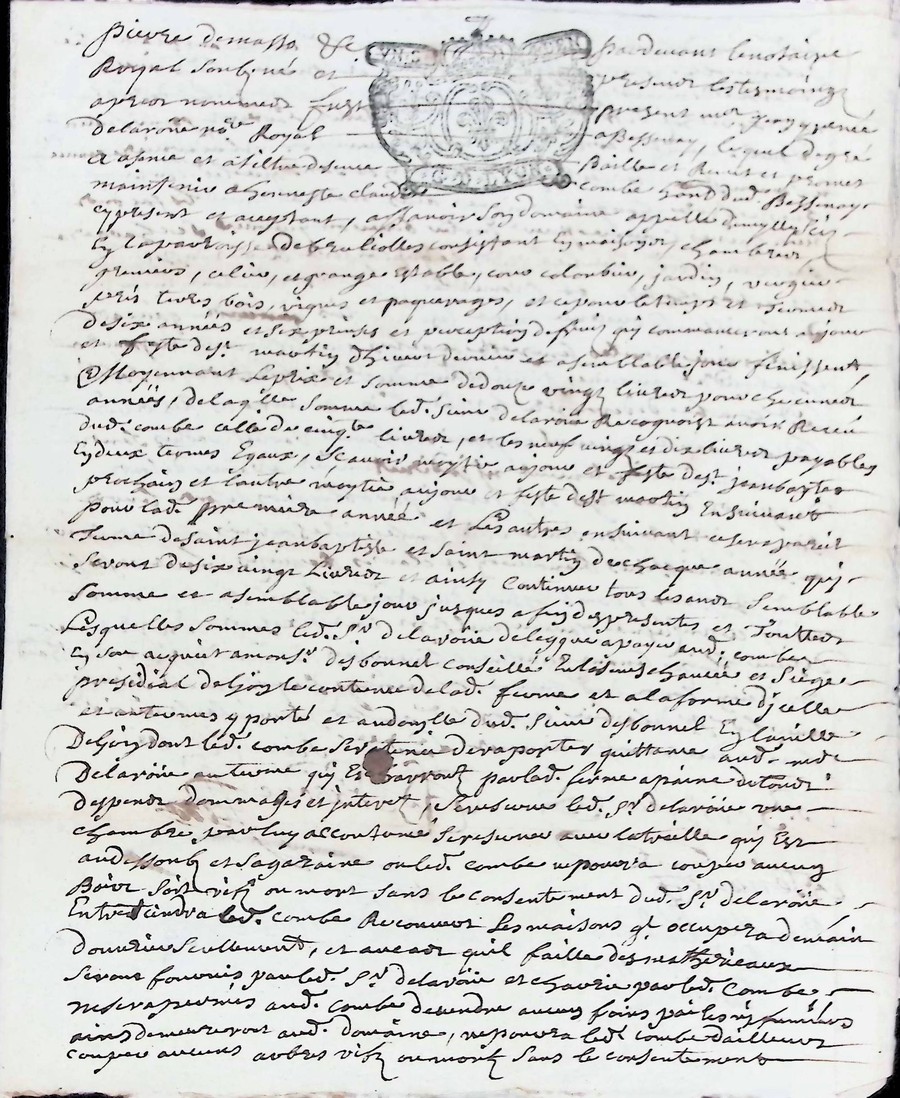 pierre demasso &c pardevant le notaire
Royal soubsné et presence les tesmoingz
apres nommes fust present mre
delaroüe nore Royal a Bessenay, lequel de gré
a asmé et a tiltre de ferme Baille et Remet et promet
maintenir a honneste claude combe dud. Bessenay
cy present et acceptant, assavoir son domaine appellé
En la parroisse de brulliolles consistant En maison, chambres
greniers, celier, et grange Estable, cour colombier, jardin, verger
prés terres bois, vignes et paquerages, et ce pour le temps et terme
de six années et six prinses et perception de fruis quy commanceront a jour
et feste de st martin d'hivert dernier et a semblable jour finissent,
Moyennant Le prix et somme de douze vingt livres pour chascunes
années, de laqlle somme led. sieur delaroüe Recognoist avoir Receu
dud. combe celle de cinqte livres, et les neuf vingt et dix livres payables
En deux termes Egaux, scavoir moytié au jour et feste de st jean baptiste
prochain et l'autre moytié au jour et feste de st martin Ensuivant
pour lad. premiere année et Les autres ensuivant
Terme de saint jean baptiste et saint martin de chacque année quy
seront de six vingt Livres et ainsy Continuer tous les ans semblable
somme et a semblable jour jusques a fin des presentes et Touttes
Lesquelles sommes led. Sr. delaroüe delegue a payer aud. combe
En son acquit a monsr. desbonnel conseiller En la senechaucée et Siege
presidial de Lyon le contenu de lad. ferme et a la forme d'icelle
et au termes y porté et au domylle dud. sieur desbonnel En la ville
De Lyon dont led. combe sera tenu de raporter quittance aud. mre
Delaroüe au terme quy Escharront par lad. ferme a paine de tous
despens dommages et interest, se reserve led. Sr. delaroüe une
chambre par luy accoutumé se reserver avec la treille quy Est
au dessoubz et sa garaine ou led. combe ne pourra couper aucung
Bois soit vifz ou mort sans le consentement dud. Sr. delaroüe
Entretiendra led. combe Recouvert Les maisons ql. occupera de main
d'ouvrier seullement, et au cas quil faille des matheriaux
seront fournis par led. Sr. delaroüe et charrié par led. Combe
ne sera permis aud. combe de vendre aucun foins pailles ny fumiers
ains demeureront aud. domaine, ne pourra led. combe d'ailleurs
couper aucuns arbres vifz ou mortz sans le consentement